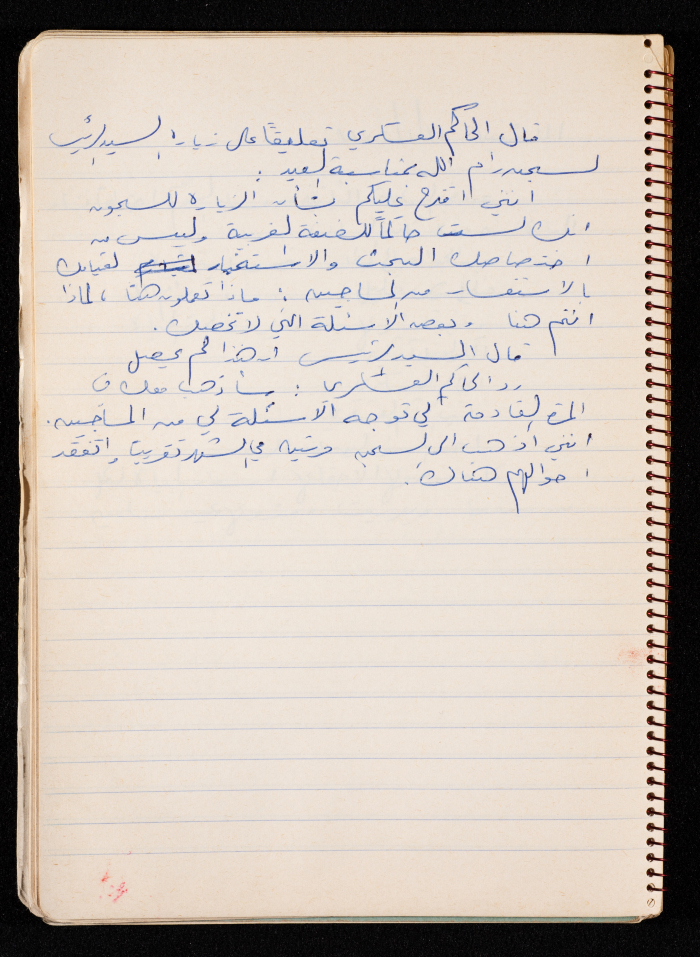 قال الحاكم العسكري تعليقاً على زيارة السيد الرئيس
لسجن رام الله بمناسبة العيد :
انني اقترح عليكم بشأن الزيارة للسجون
انك لست حاكماً للضفة الغربية وليس من
اختصاصك البحث والاستخبار لقيامك
بالاستفسار من المساجين : ماذا تعملون هنا ، لماذا
انتم هنا وبعض الاسئلة التي لا تخصك .
قال السيد الرئيس ان هذا لم يحصل
رد الحاكم العسكري : سأذهب معك في
المرة القادمة لكي توجه الاسئلة لي من المساجين .
انني اذهب الى السجن مرتين في الشهر تقريباً واتفقد
احوالهم هناك .